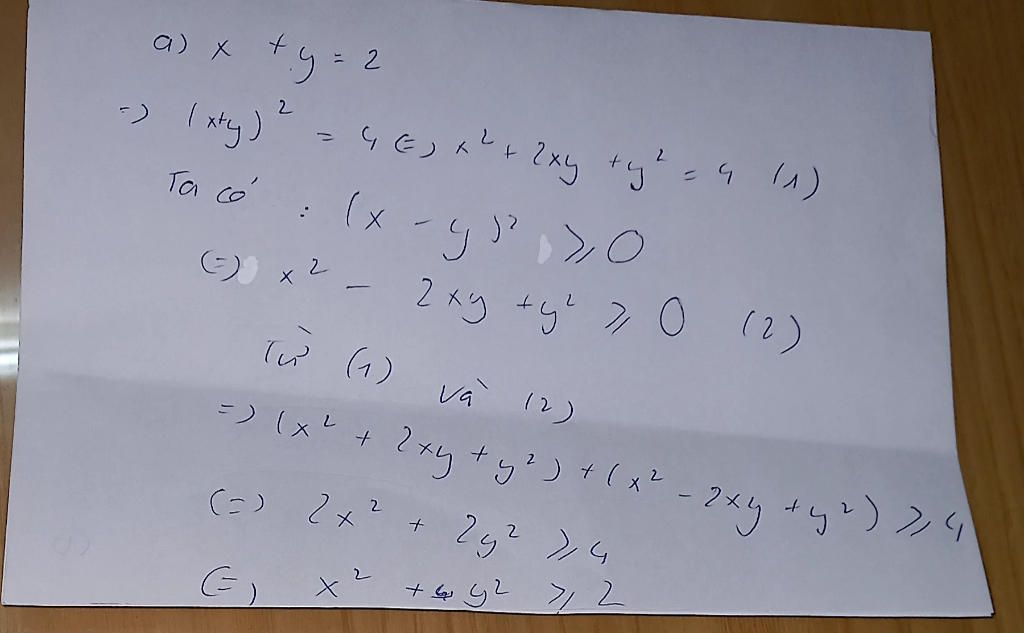 a) x + y = 2
=> (x+y)² = 4 <=> x² + 2xy + y² = 4 (1)
Ta có : (x - y)² ⩾ 0
<=> x² - 2xy + y² ⩾ 0 (2)
Từ (1) và (2)
=> (x² + 2xy + y²) + (x² - 2xy + y²) ⩾ 4
<=> 2x² + 2y² ⩾ 4
<=> x² + y² ⩾ 2